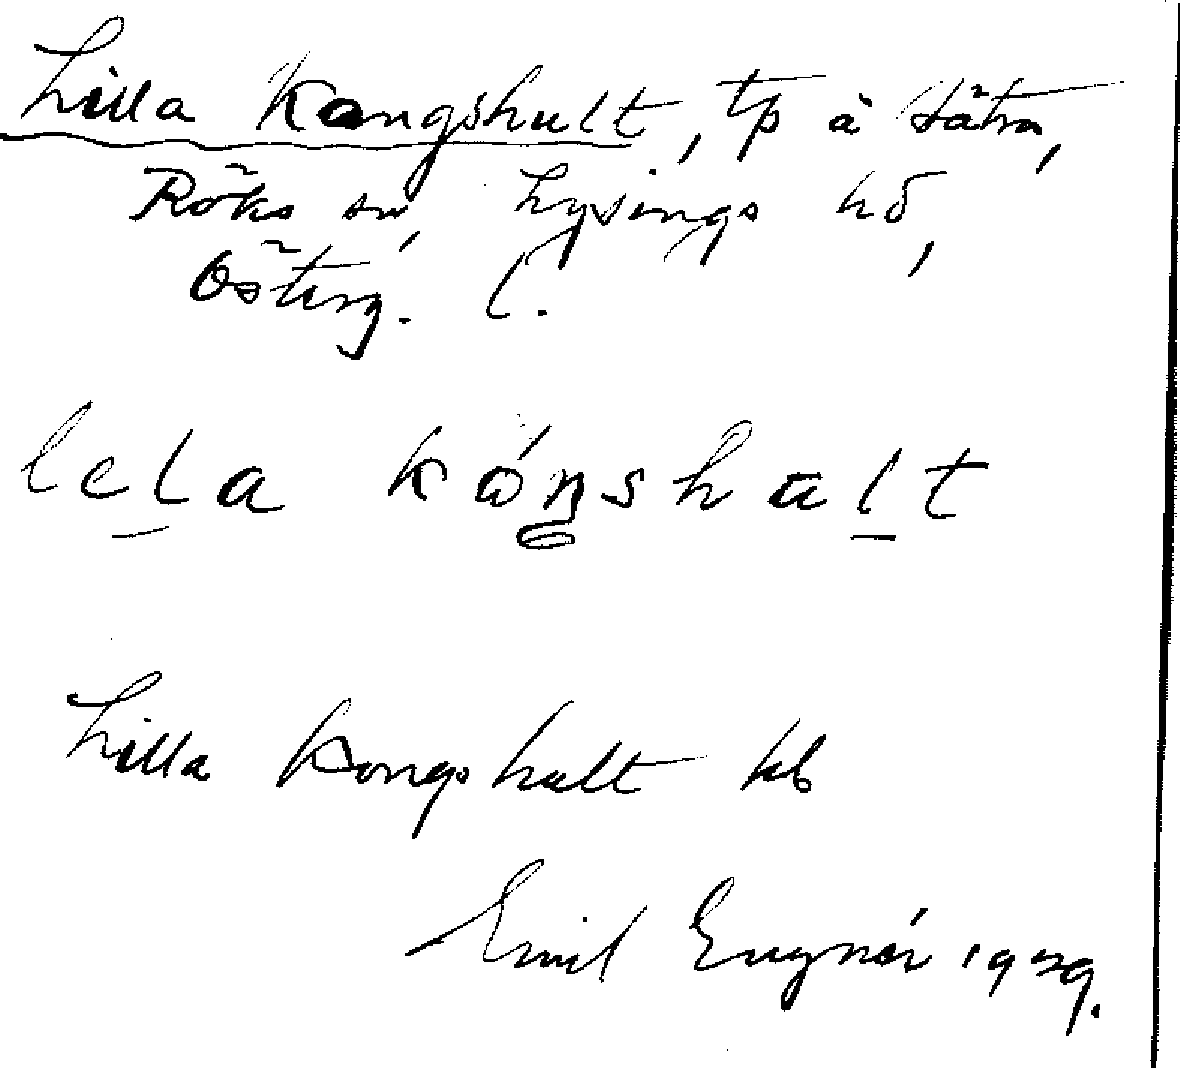 Lilla Kongshult, tp å Sätra,
Röks sn, Lysings hd,
Österg. l.
lela kóŋshalt
Lilla Kongshult kb
Emil Eugnér 1929.